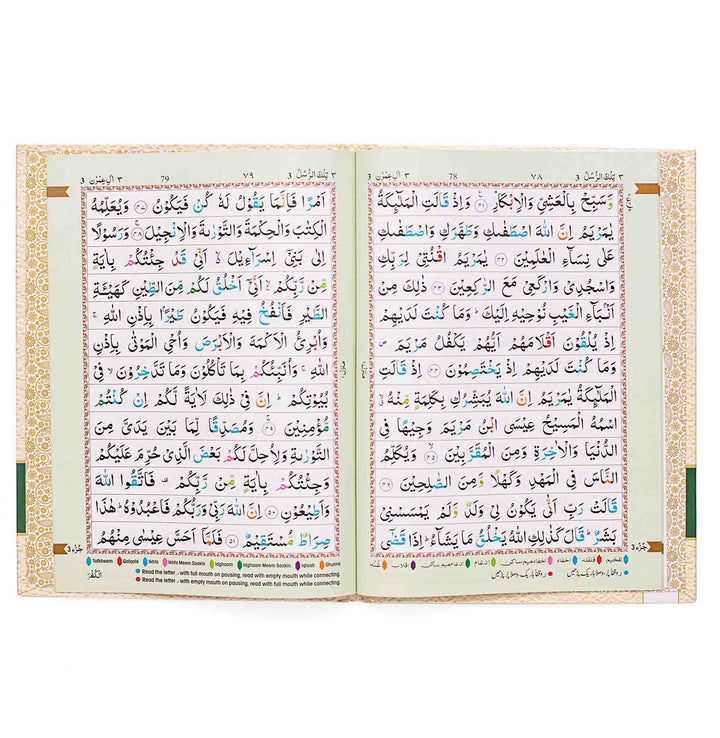 ٣ تِلْكَ الرُّسُلُ 3 ٧٨ 78 ٣ اٰلِ عِمْرٰن 3
وَّسَبِّحْ بِالْعَشِيِّ وَالْاِبْكَارِ ﴿۴۱﴾ وَاِذْ قَالَتِ الْمَلٰٓئِكَةُ
يٰمَرْيَمُ اِنَّ اللّٰهَ اصْطَفٰىكِ وَطَهَّرَكِ وَاصْطَفٰىكِ
عَلٰى نِسَآءِ الْعٰلَمِيْنَ ﴿۴۲﴾ يٰمَرْيَمُ اقْنُتِىْ لِرَبِّكِ
وَاسْجُدِىْ وَارْكَعِىْ مَعَ الرّٰكِعِيْنَ ﴿۴۳﴾ ذٰلِكَ مِنْ
اَنْۢبَآءِ الْغَيْبِ نُوْحِيْهِ اِلَيْكَ ؕ وَمَا كُنْتَ لَدَيْهِمْ
اِذْ يُلْقُوْنَ اَقْلَامَهُمْ اَيُّهُمْ يَكْفُلُ مَرْيَمَ ۪
وَمَا كُنْتَ لَدَيْهِمْ اِذْ يَخْتَصِمُوْنَ ﴿۴۴﴾ اِذْ قَالَتِ
الْمَلٰٓئِكَةُ يٰمَرْيَمُ اِنَّ اللّٰهَ يُبَشِّرُكِ بِكَلِمَةٍ مِّنْهُ ۖۗ
اسْمُهُ الْمَسِيْحُ عِيْسَى ابْنُ مَرْيَمَ وَجِيْهًا فِى
الدُّنْيَا وَالْاٰخِرَةِ وَمِنَ الْمُقَرَّبِيْنَ ﴿۴۵﴾ وَيُكَلِّمُ
النَّاسَ فِى الْمَهْدِ وَكَهْلًا وَّمِنَ الصّٰلِحِيْنَ ﴿۴۶﴾
قَالَتْ رَبِّ اَنّٰى يَكُوْنُ لِىْ وَلَدٌ وَّلَمْ يَمْسَسْنِىْ
بَشَرٌ ؕ قَالَ كَذٰلِكِ اللّٰهُ يَخْلُقُ مَا يَشَآءُ ؕ اِذَا قَضٰٓى
جُزْء 3
تفخیم قلقلہ اخفاء اخفا میم ساکن ادغام ادغام میم ساکن اقلاب غنّہ
٣ تِلْكَ الرُّسُلُ 3 ٧٩ 79 ٣ اٰلِ عِمْرٰن 3
اَمْرًا فَاِنَّمَا يَقُوْلُ لَهٗ كُنْ فَيَكُوْنُ ﴿۴۷﴾ وَيُعَلِّمُهُ
الْكِتٰبَ وَالْحِكْمَةَ وَالتَّوْرٰىةَ وَالْاِنْجِيْلَ ﴿۴۸﴾ وَرَسُوْلًا
اِلٰى بَنِىْٓ اِسْرَآءِيْلَ ۙ اَنِّىْ قَدْ جِئْتُكُمْ بِاٰيَةٍ
مِّنْ رَّبِّكُمْ ۙ اَنِّىْٓ اَخْلُقُ لَكُمْ مِّنَ الطِّيْنِ كَهَيْئَةِ
الطَّيْرِ فَاَنْفُخُ فِيْهِ فَيَكُوْنُ طَيْرًۢا بِاِذْنِ اللّٰهِ ۚ
وَاُبْرِئُ الْاَكْمَهَ وَالْاَبْرَصَ وَاُحْىِ الْمَوْتٰى بِاِذْنِ
اللّٰهِ ۚ وَاُنَبِّئُكُمْ بِمَا تَاْكُلُوْنَ وَمَا تَدَّخِرُوْنَ ۙ فِىْ
بُيُوْتِكُمْ ؕ اِنَّ فِىْ ذٰلِكَ لَاٰيَةً لَّكُمْ اِنْ كُنْتُمْ
مُّؤْمِنِيْنَ ﴿۴۹﴾ وَمُصَدِّقًا لِّمَا بَيْنَ يَدَىَّ مِنَ
التَّوْرٰىةِ وَلِاُحِلَّ لَكُمْ بَعْضَ الَّذِىْ حُرِّمَ عَلَيْكُمْ
وَجِئْتُكُمْ بِاٰيَةٍ مِّنْ رَّبِّكُمْ ۟ فَاتَّقُوا اللّٰهَ
وَاَطِيْعُوْنِ ﴿۵۰﴾ اِنَّ اللّٰهَ رَبِّىْ وَرَبُّكُمْ فَاعْبُدُوْهُ ؕ هٰذَا
صِرَاطٌ مُّسْتَقِيْمٌ ﴿۵۱﴾ فَلَمَّاۤ اَحَسَّ عِيْسٰى مِنْهُمُ
جُزْء 3
Tafkheem Qalqala Ikhfa Ikhfa Meem Saakin Idghaam Idghaam Meem Saakin Iqlaab Ghunna
Read the letter ر with full mouth on pausing, read with empty mouth while connecting
Read the letter ر with empty mouth on pausing, read with full mouth while connecting
الْكُفْرَ